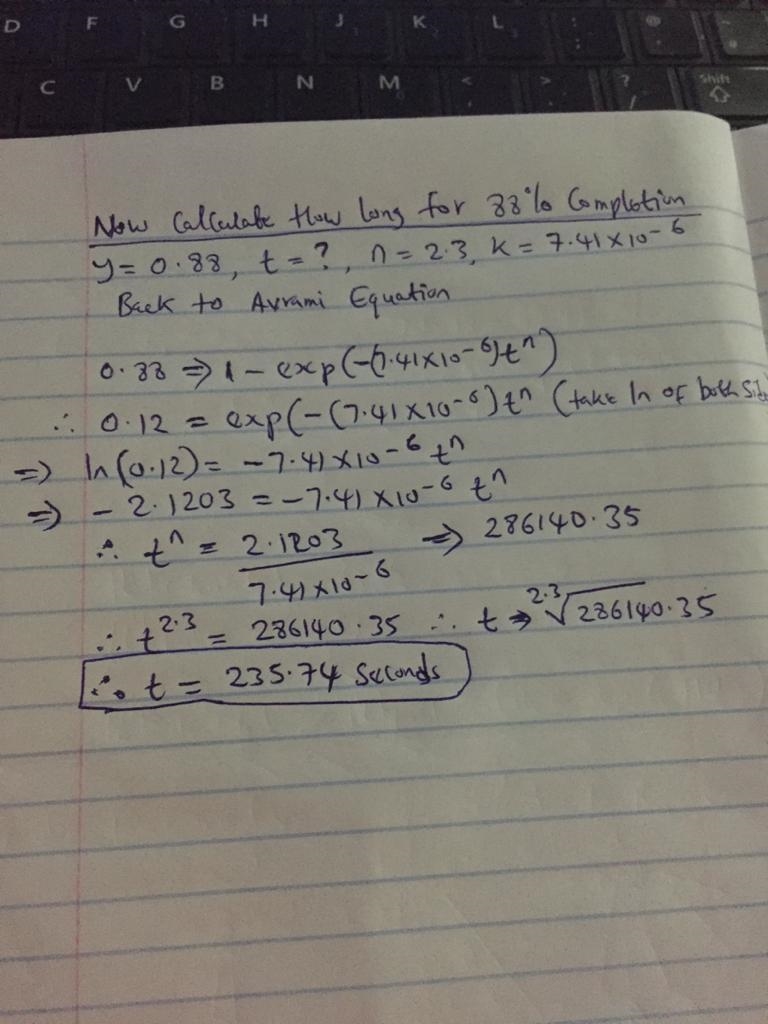 D F G H J K L : ;
C V B N M < > ? / Shift
Now Calculate How long for 88% Completion
y = 0.88, t = ?, n = 2.3, K = 7.41 x 10-6
Back to Avrami Equation
0.88 ⇒ 1 - exp(-(7.41x10-6)tn)
∴ 0.12 = exp(-(7.41x10-6)tn (take ln of both Side
⇒ ln(0.12) = -7.41 x10-6 tn
⇒ - 2.1203 = -7.41 x10-6 tn
∴ tn = 2.1203 / 7.41 x10-6 ⇒ 286140.35
∴ t2.3 = 286140.35 ∴ t ⇒ 2.3√286140.35
∴ t = 235.74 Seconds